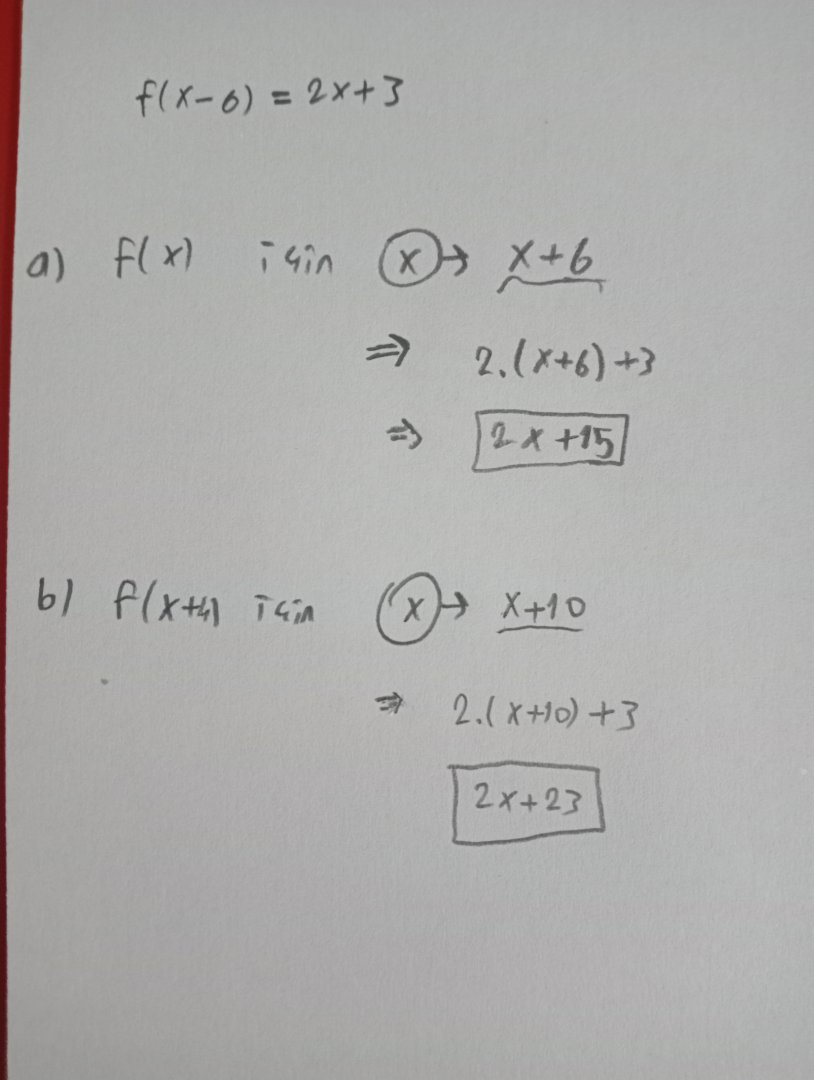 f(x-6) = 2x+3
a) f(x) için x → x+6
⇒ 2.(x+6)+3
⇒ 2x+15
b) f(x+4) için x → x+10
⇒ 2.(x+10)+3
2x+23